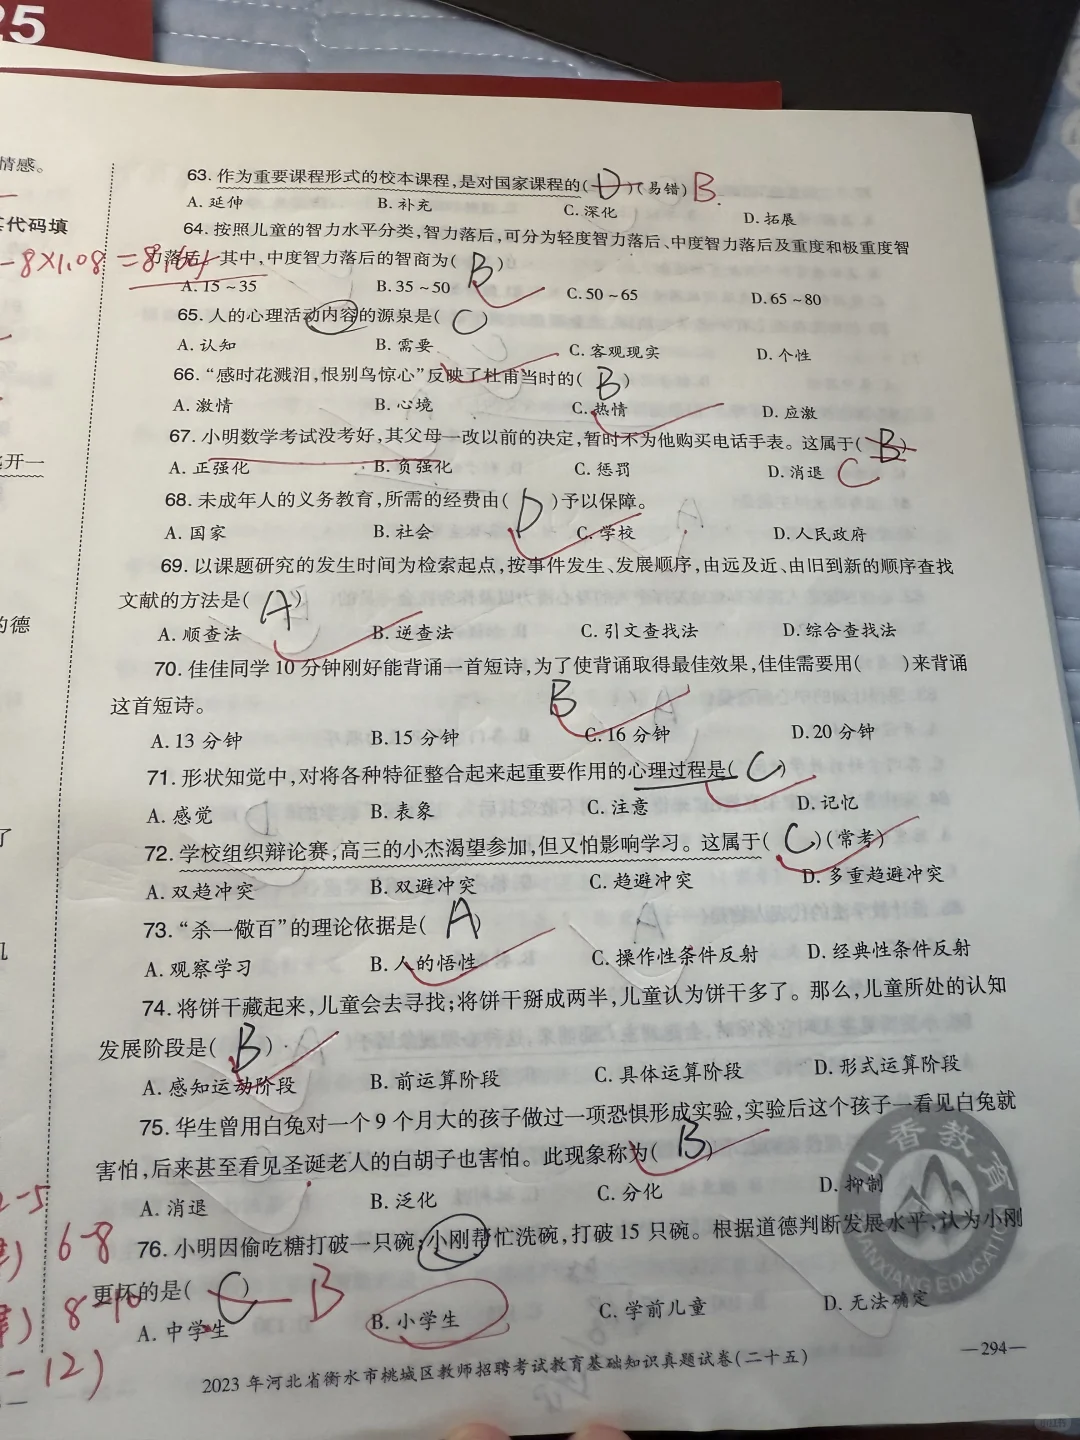 25
情感。
其代码填
-8×1.08=8.64
63. 作为重要课程形式的校本课程,是对国家课程的( D )(易错) B.
A. 延伸 B. 补充 C. 深化 D. 拓展
64. 按照儿童的智力水平分类,智力落后,可分为轻度智力落后、中度智力落后及重度和极重度智
力落后。其中,中度智力落后的智商为( B )
A. 15~35 B. 35~50 C. 50~65 D. 65~80
65. 人的心理活动内容的源泉是( C )
A. 认知 B. 需要 C. 客观现实 D. 个性
66. “感时花溅泪,恨别鸟惊心”反映了杜甫当时的( B )
A. 激情 B. 心境 C. 热情 D. 应激
67. 小明数学考试没考好,其父母一改以前的决定,暂时不为他购买电话手表。这属于( B )
A. 正强化 B. 负强化 C. 惩罚 D. 消退 C
68. 未成年人的义务教育,所需的经费由( D )予以保障。
A. 国家 B. 社会 C. 学校 D. 人民政府
69. 以课题研究的发生时间为检索起点,按事件发生、发展顺序,由远及近、由旧到新的顺序查找
文献的方法是( A )
A. 顺查法 B. 逆查法 C. 引文查找法 D. 综合查找法
70. 佳佳同学 10 分钟刚好能背诵一首短诗,为了使背诵取得最佳效果,佳佳需要用( )来背诵
这首短诗。 B
A. 13 分钟 B. 15 分钟 C. 16 分钟 D. 20 分钟
71. 形状知觉中,对将各种特征整合起来起重要作用的心理过程是( C )
A. 感觉 B. 表象 C. 注意 D. 记忆
72. 学校组织辩论赛,高三的小杰渴望参加,但又怕影响学习。这属于( C )(常考)
A. 双趋冲突 B. 双避冲突 C. 趋避冲突 D. 多重趋避冲突
73. “杀一儆百”的理论依据是( A )
A. 观察学习 B. 人的悟性 C. 操作性条件反射 D. 经典性条件反射
74. 将饼干藏起来,儿童会去寻找;将饼干掰成两半,儿童认为饼干多了。那么,儿童所处的认知
发展阶段是( B )
A. 感知运动阶段 B. 前运算阶段 C. 具体运算阶段 D. 形式运算阶段
75. 华生曾用白兔对一个 9 个月大的孩子做过一项恐惧形成实验,实验后这个孩子一看见白兔就
害怕,后来甚至看见圣诞老人的白胡子也害怕。此现象称为( B )
A. 消退 B. 泛化 C. 分化 D. 抑制
76. 小明因偷吃糖打破一只碗;小刚帮忙洗碗,打破 15 只碗。根据道德判断发展水平,认为小刚
更坏的是( C ) B
A. 中学生 B. 小学生 C. 学前儿童 D. 无法确定
2023 年河北省衡水市桃城区教师招聘考试教育基础知识真题试卷(二十五)
—294—
山香教育
SHANXIANG EDUCATION
逃开一
的德
了
2-5
6-8
8-10
-12)